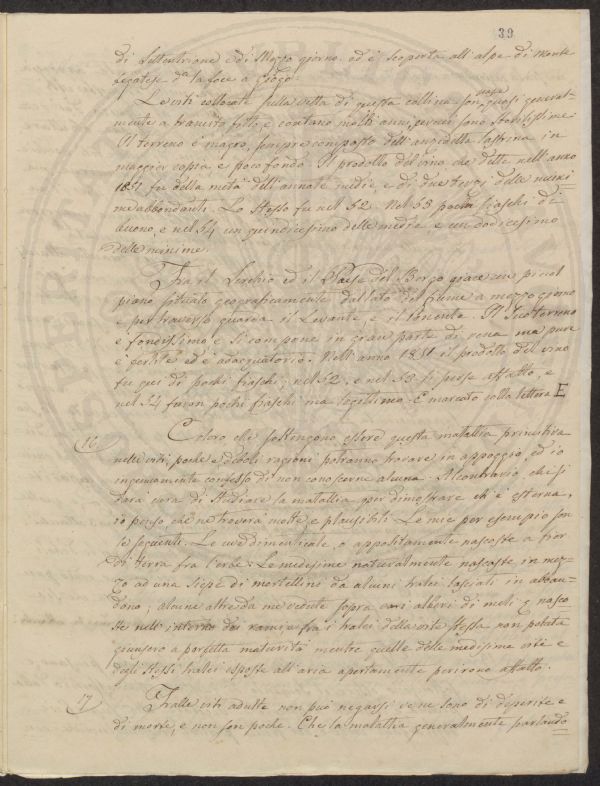 39
di Settentrione e di Mezzo giorno. ed è scoperta all'alpe di Monte
fegatese da la foce a Giogo.
Le viti collocate sulla vetta di questa collina son messe quasi general-
mente a tramite fitto e contano molti anni, perciò sono
Il terreno è magro, sempre composto dell'anzidetta lastrina in
maggior copia e poco fondo. Il prodotto del vino che dette nell'anno
1851 fu della metà dell'annate medie e di due terzi delle
me abbondanti. Lo stesso fu nel 52. Nel 53 pochi fiaschi di
buono, e nel 54 un quindicesimo delle medie e un dodicesimo
delle minime.
Fra il Serchio ed il Paese del Borgo giace un piccol
piano situato geograficamente dal lato del fiume a mezzo giorno
e per traverso guarda il Levante e il Ponente. Il suo terreno
è fondissimo e si compone in gran parte di rena ma pure
è fertile ed è adacquatorio. Nell'anno 1851 il prodotto del vino
fu quei di pochi fiaschi; nel 52. e nel 53 si perse affatto, e
nel 54 furon pochi fiaschi ma legittimo. È marcato colla lettera E
16 Coloro che sostengono essere questa malattia primitiva
nelle viti, poche e deboli ragioni potranno trovare in appoggio, ed io
ingenuamente confesso di non conoscerne alcuna. Al contrario chi si
darà cura di studiare la malattia per dimostrare ch'è esterna,
io penso, che ne troverà molte e plausibili. Le mie per esempio son
le seguenti. Le uve dimenticate, o appositamente nascoste a fior
di terra fra l'erbe. Le medesime naturalmente nascoste in mez-
zo ad una siepe di mortellino da alcuni tralci lasciati in abban-
dono; alcune altre da me vedute sopra vari alberi di meli e nasco-
ste nell'interno dei rami e fra i tralci della vite stessa non potata
giunsero a perfetta maturità mentre quelle delle medesime viti e
degli stessi tralci esposte all'aria apertamente perirono affatto.
17 Fralle viti adulte non può negarsi ve ne sono di deperite e
di morte, e non son poche. Che la malattia generalmente parlando